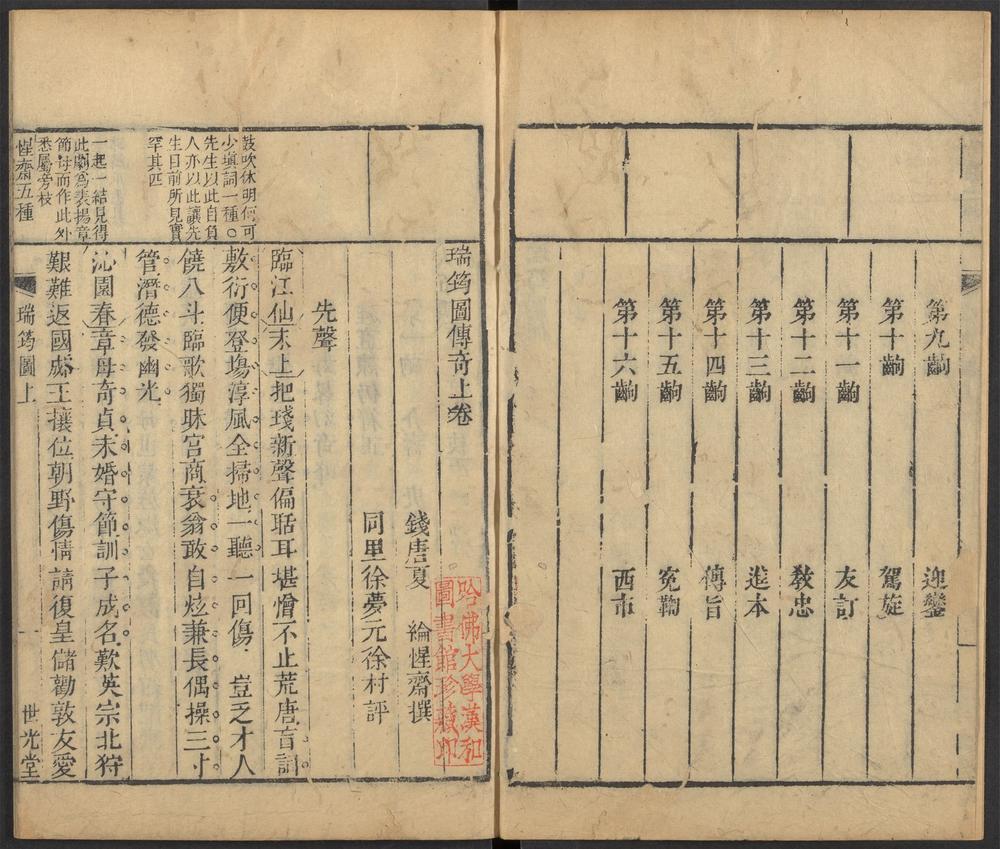 第九齣 迎鑾
第十齣 駕旋
第十一齣 友訂
第十二齣 敎忠
第十三齣 進本
第十四齣 傳旨
第十五齣 冤鞫
第十六齣 西市
一
瑞筠圖傳奇上卷
錢唐夏 綸惺齋撰
同里徐夢元徐村評
哈佛大學漢和
圖書館珍藏印
先聲
鼓吹休明何可
少塡詞一種○
先生以此自負
人亦以此讓先
生目前所見實
罕其匹
臨江仙末上把琖新聲偏聒耳堪憎不止荒唐盲詞
敷衍便登塲淳風全掃地一聽一回傷 豈乏才人
饒八斗臨歌獨昧宮商衰翁敢自炫兼長偶操三寸
管潛德發幽光
一起一結見得
此劇爲表揚章
節母而作此外
悉屬旁枝
沁園春章母奇貞未婚守節訓子成名歎英宗北狩
艱難返國成王攘位朝野傷情請復皇儲勸敦友愛
惺齋五種
瑞筠圖上
一
世光堂